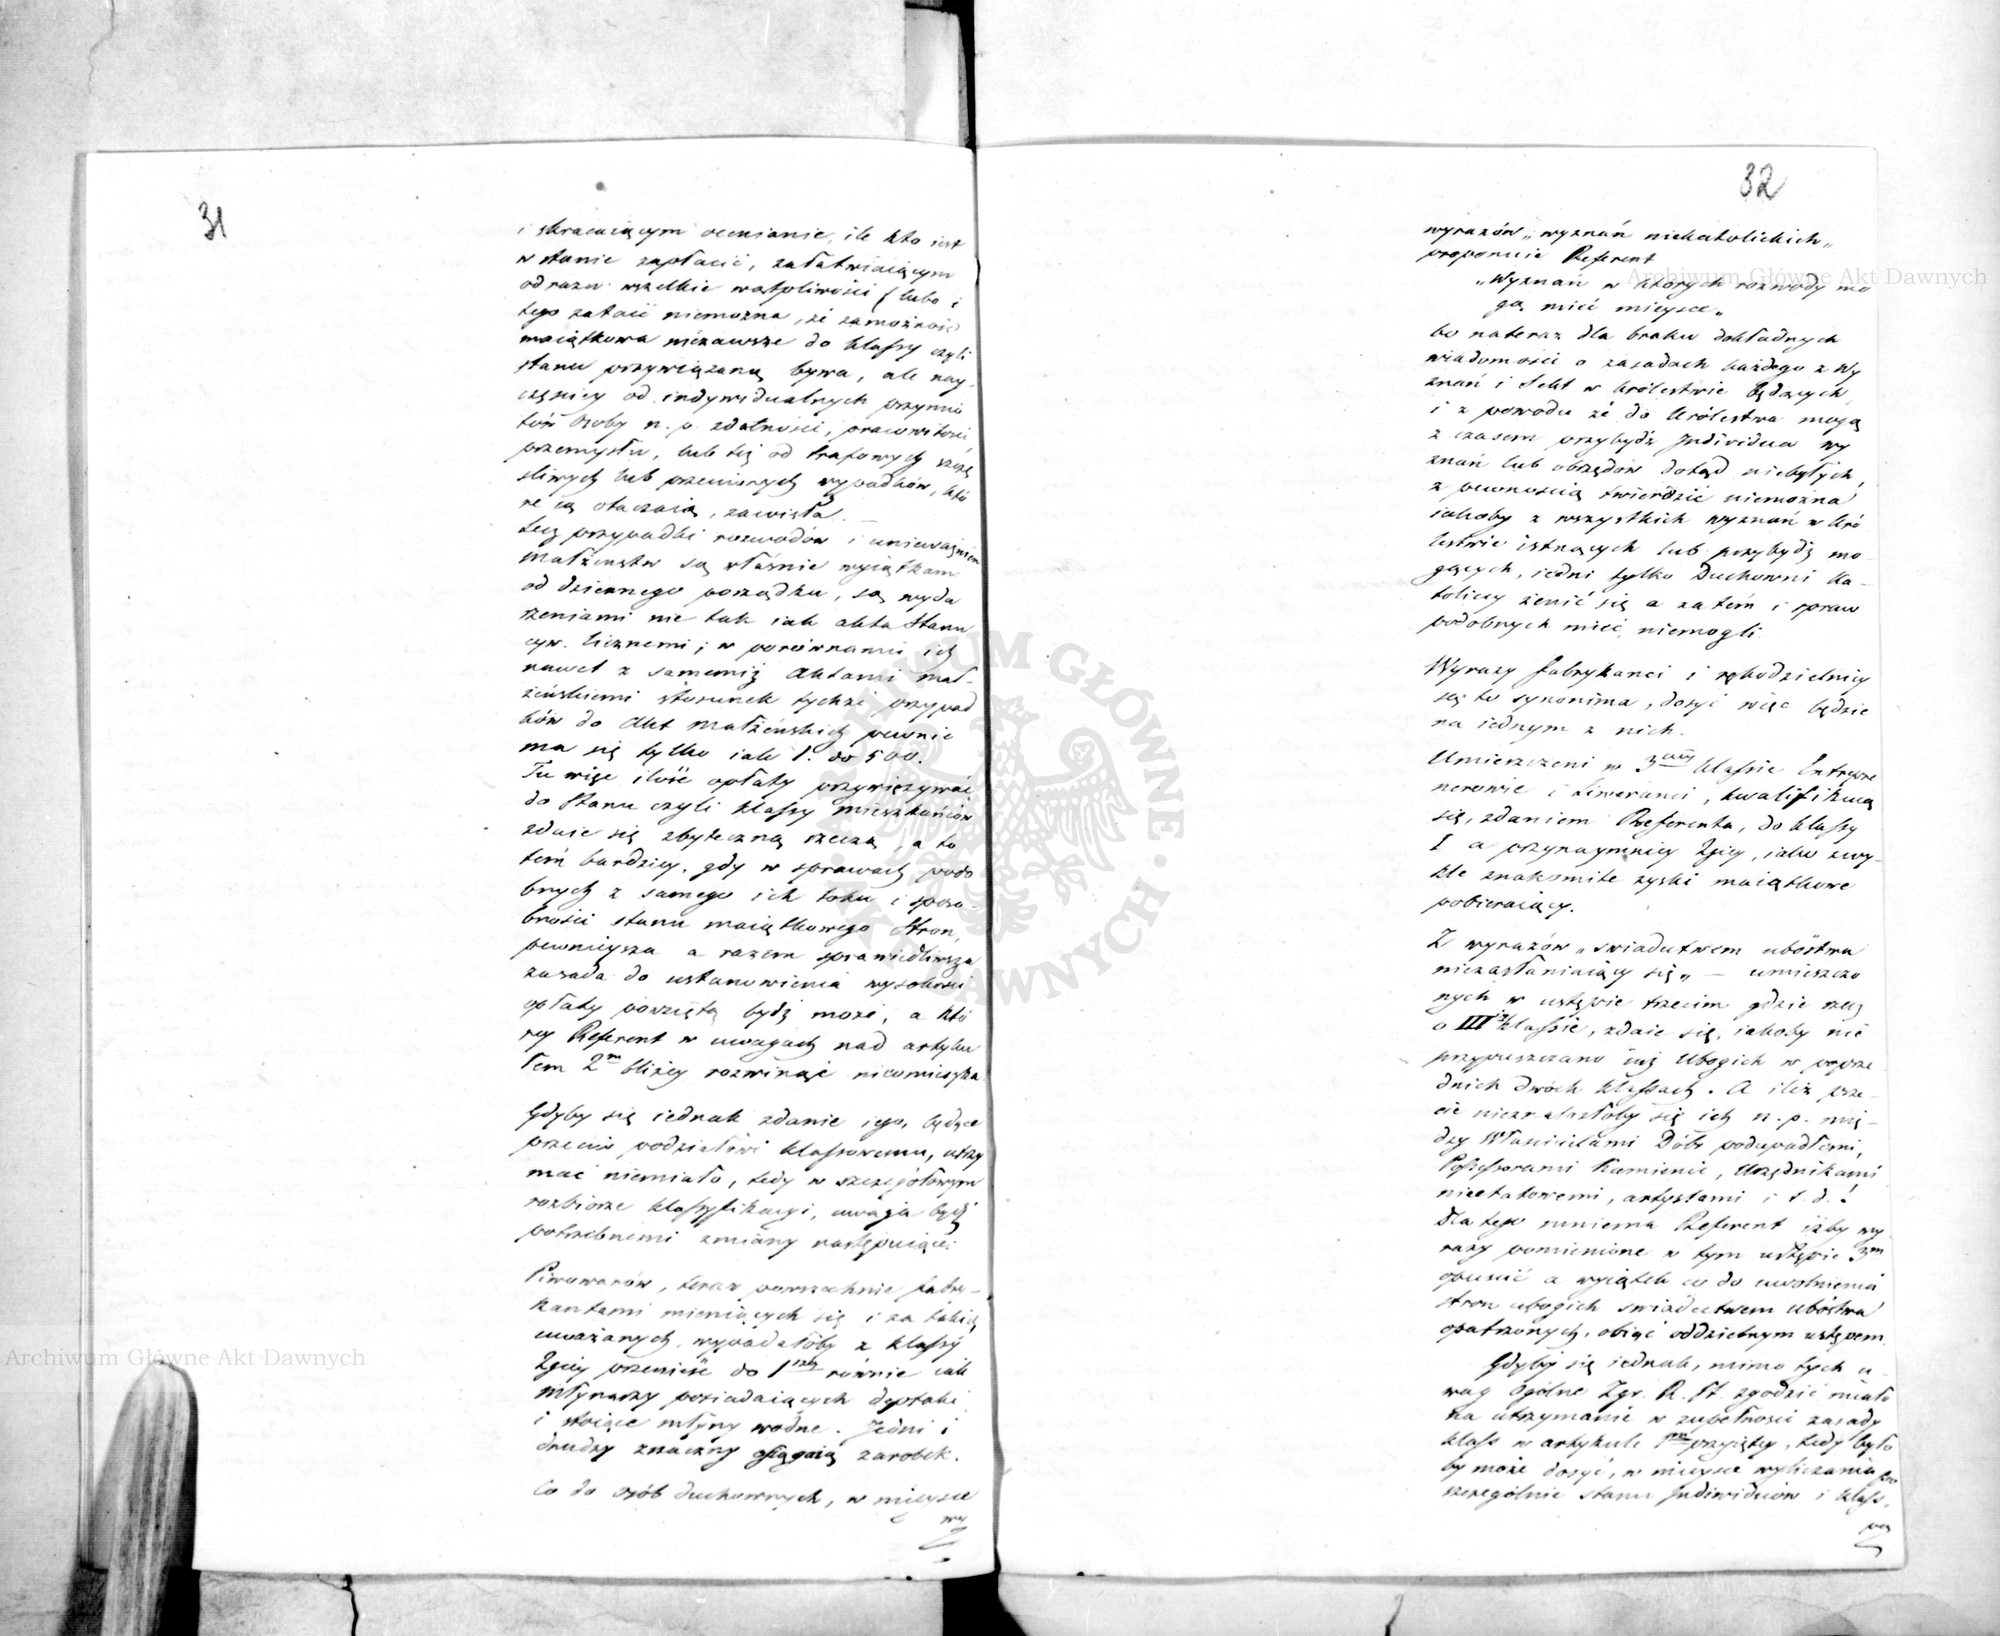 31
i skracaiącym ocenianie, ile kto iest
w stanie zapłacić, załatwiaiącym
odrazu wszelkie wątpliwości (lubo i
tego zataić niemożna, że zamożność
maiątkowa niezawsze do klassy czyli
stanu przywiązaną bywa, ale nay
częściey od indywidualnych przymio
tów osoby n. p. zdatności, pracowitości
przemysłu, lub też od trafowych szczę
śliwych lub przeciwnych wypadków, któ
re ią otaczaią, zawisła. —
Lecz przypadki rozwodów i unieważnień
małżeństw są właśnie wyiątkam
od dziennego porządku, są wyda
rzeniami nie tak iak akta Stanu
cyw. licznemi; w porównaniu ich
nawet z samemiż Aktami mał-
żeńskiemi stosunek tychże przypad
ków do Akt Małżeńskich pewnie
ma się tylko iak 1. do 500.
Tu więc ilość opłaty przywięzywać
do Stanu czyli klassy mieszkańców
zdaie się zbyteczną rzeczą, a to
tém bardziey, gdy w sprawach podo
bnych z samego ich toku i sposo
bności stanu maiątkowego Stron,
pewnieysza a razem sprawiedliwsza
zasada do ustanowienia wysokości
opłaty powziętą bydź może, a któ
rey Referent w uwagach nad artyku
łem 2m bliżey rozwinąć nieomieszka.
Gdyby się iednak zdanie iego, będące
przeciw podziałowi klassowemu, utrzy
mać niemiało, tedy w szczegółowym
rozbiorze klassyfikacyi, uważa bydź
potrzebnemi zmiany następuiące:
Piwowarów, teraz powszechnie fabry-
kantami mieniących się i za takich
uważanych, wypadałoby z klassy
2giey przenieść do 1szey równie iak
Młynarzy posiadaiących deptaki
i stoiące młyny wodne. Jedni i
drudzy znaczny osiągaią zarobek.
Co do osób duchownych, w mieysce
wy
32
wyrazów „ wyznań niekatolickich „
proponuie Referent
„Wyznań w których rozwody mo
gą mieć mieysce„
bo nateraz dla braku dokładnych
wiadomości o zasadach każdego z Wy
znań i Sekt w królestwie będących,
i z powodu że do Królestwa mogą
z czasem przybydź Individua wy
znań lub obrzędów dotąd niebyłych,
z pewnością twierdzić niemożna
iakoby z wszystkich wyznań w Kró
lestwie istnących lub przybydź mo-
gących, iedni tylko Duchowni Ka-
toliccy żenić się a zatém i spraw
podobnych mieć niemogli.
Wyrazy fabrykanci i rękodzielnicy
są to synonima, dosyć więc będzie
na iednym z nich.
Umieszczeni w 3ciey klassie Entrepre
nerowie i Liweranci, kwalifikuią
się, zdaniem Referenta, do klassy
I a przynaymniey 2giey, iako zwy-
kle znakomite zyski maiątkowe
pobieraiący.
Z wyrazów „swiadectwem ubóstwa
niezasłaniaiący się„ — umieszczo
nych w ustępie trzecim gdzie rzecz
o III klassie, zdaie się, iakoby nie
przypuszczano iuż Ubogich w poprze
dnich dwóch klassach. A ileż prze-
cie nieznalazłoby się ich n. p. mię-
dzy Właścicielami Dóbr podupadłemi,
Possessorami Kamienic, Urzędnikami
nieetatowemi, artystami i t. d.!
Dla tego mniema Referent iżby wy
razy pomienione w tym ustępie 3m
opuścić a wyiątek co do uwolnienia
stron ubogich swiadectwem ubóstwa
opatrzonych, obiąć oddzielnym ustępem.
Gdyby się iednak, mimo tych u-
wag Ogólne Zgr. R. St. zgodzić miało
na utrzymanie w zupełności zasady
klass w artykule 1m przyiętey, tedy było
by może dosyć, w mieysce wyliczania po
szczególnie stanu Indiwiduów i klass,